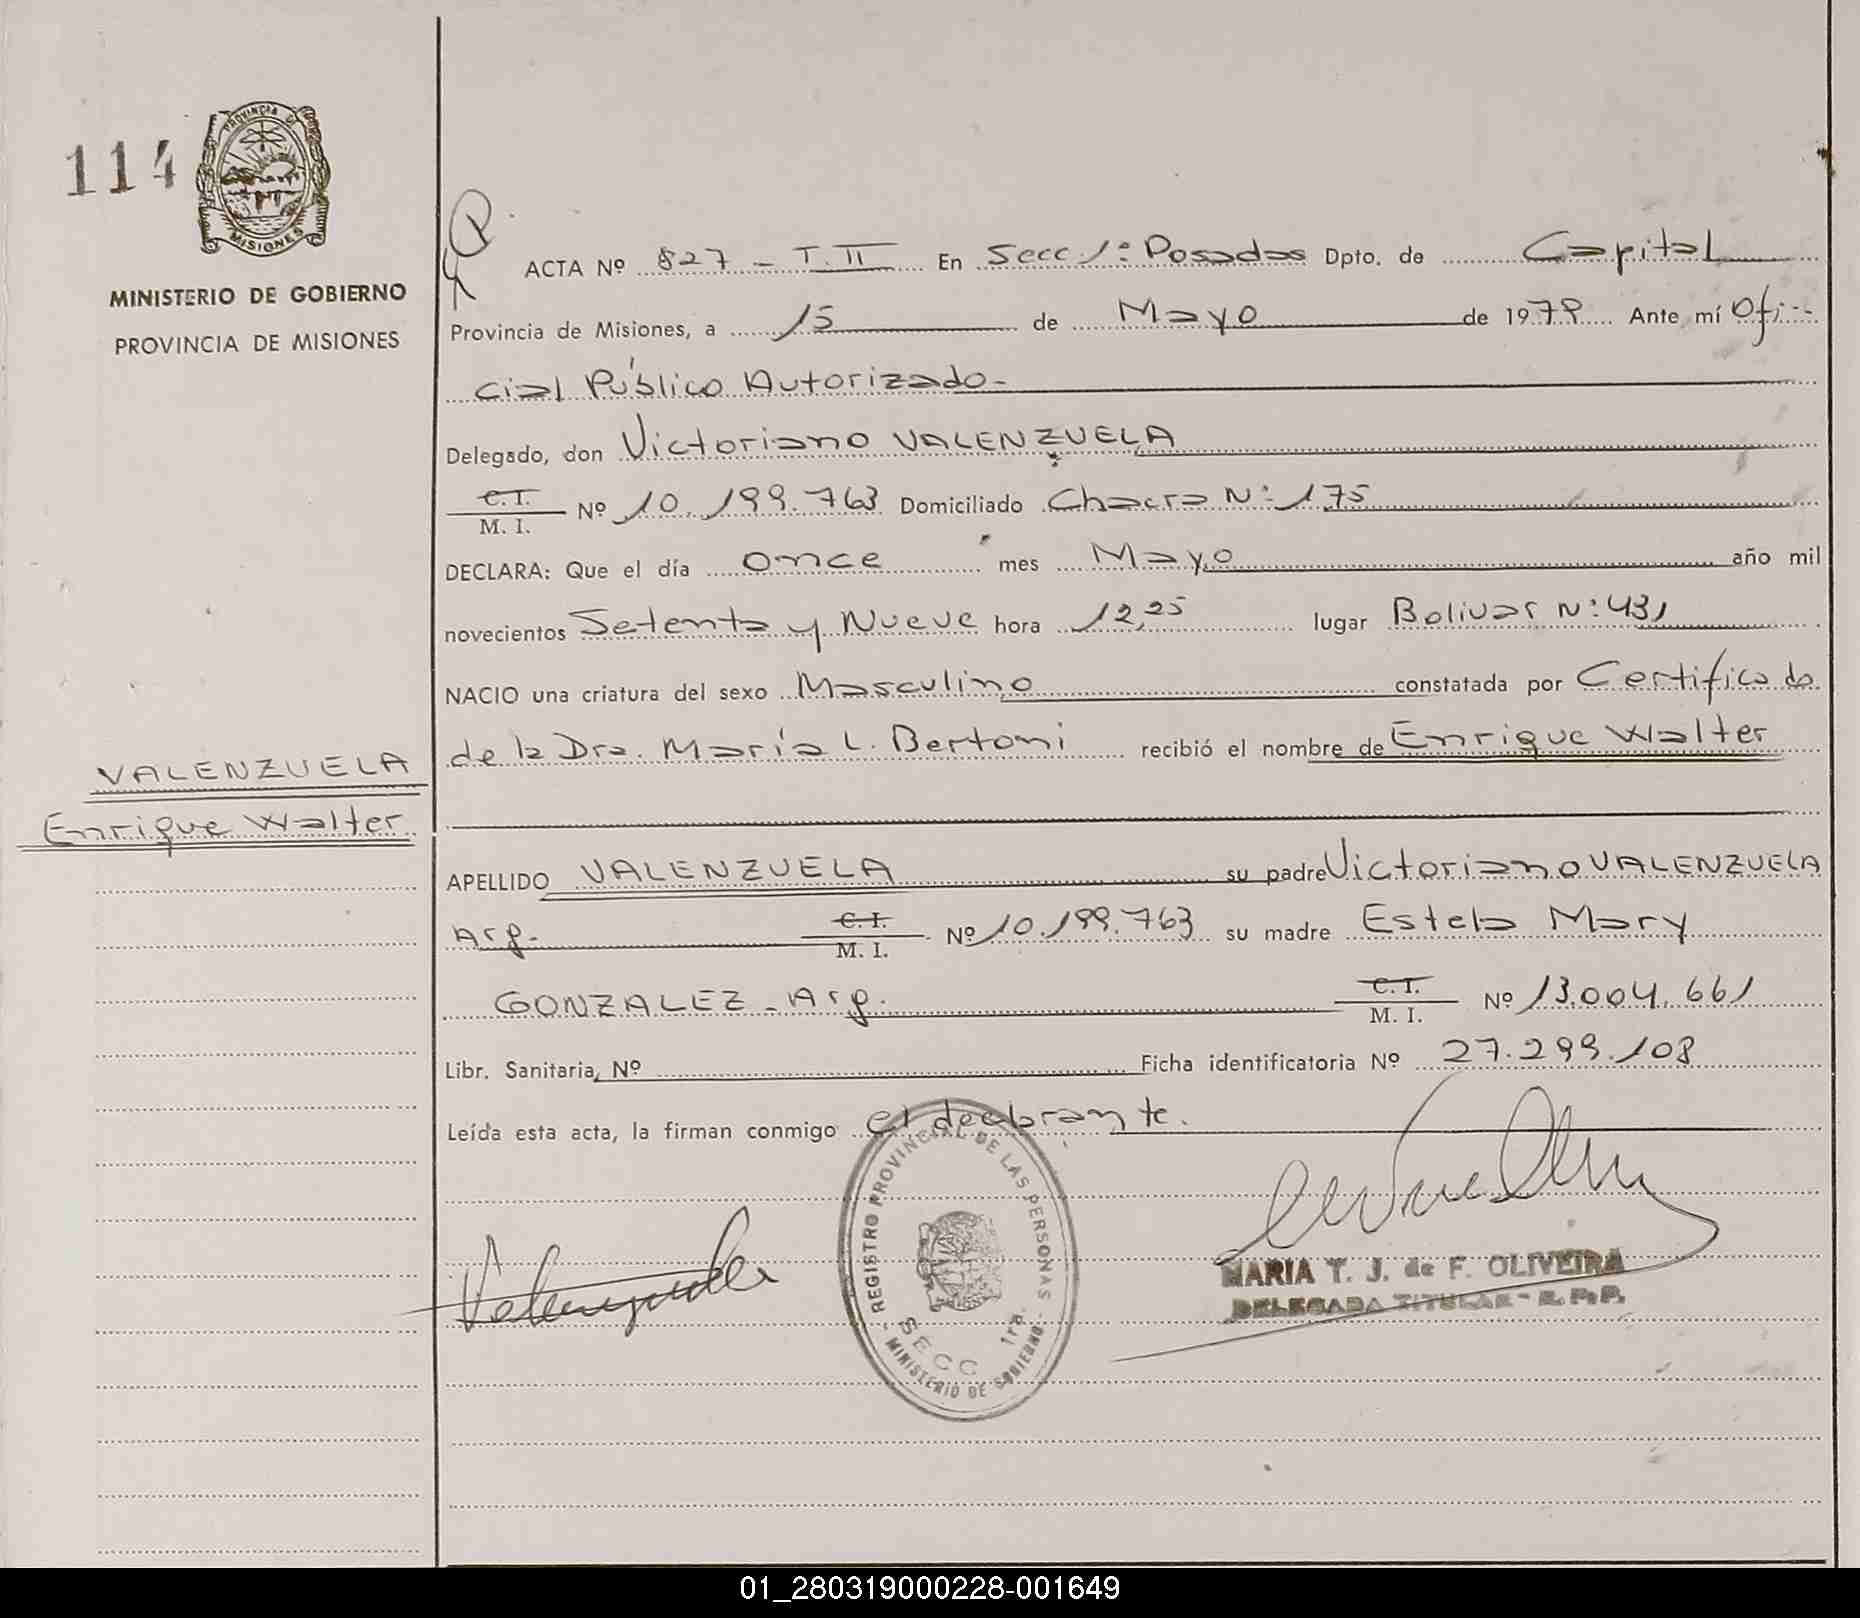 114
PROVINCIA DE
MISIONES
MINISTERIO DE GOBIERNO
PROVINCIA DE MISIONES
VALENZUELA
Enrique Walter
ACTA Nº 827 - T. II En Secc 1ª Posadas Dpto. de Capital
Provincia de Misiones, a 15 de Mayo de 1979 Ante mí Ofi-
cial Público Autorizado-
Delegado, don Victoriano VALENZUELA
C. I.
M. I. Nº 10.199.763 Domiciliado Chacra Nº 175
DECLARA: Que el día once mes Mayo año mil
novecientos Setenta y Nueve hora 12,25 lugar Bolivar Nº 431
NACIO una criatura del sexo Masculino constatada por Certificado
de la Dra. María L. Bertoni recibió el nombre de Enrique Walter
APELLIDO VALENZUELA su padre Victoriano VALENZUELA
Arg. C. I.
M. I. Nº 10.199.763 su madre Estela Mary
GONZALEZ - Arg. C. I.
M. I. Nº 13.004.661
Libr. Sanitaria, Nº Ficha identificatoria Nº 27.299.108
Leída esta acta, la firman conmigo el declarante.
REGISTRO PROVINCIAL DE LAS PERSONAS
SECC 1ra.
- MINISTERIO DE GOBIERNO -
MARIA T. J. de F. OLIVEIRA
DELEGADA TITULAR - R. P. P.
01_280319000228-001649